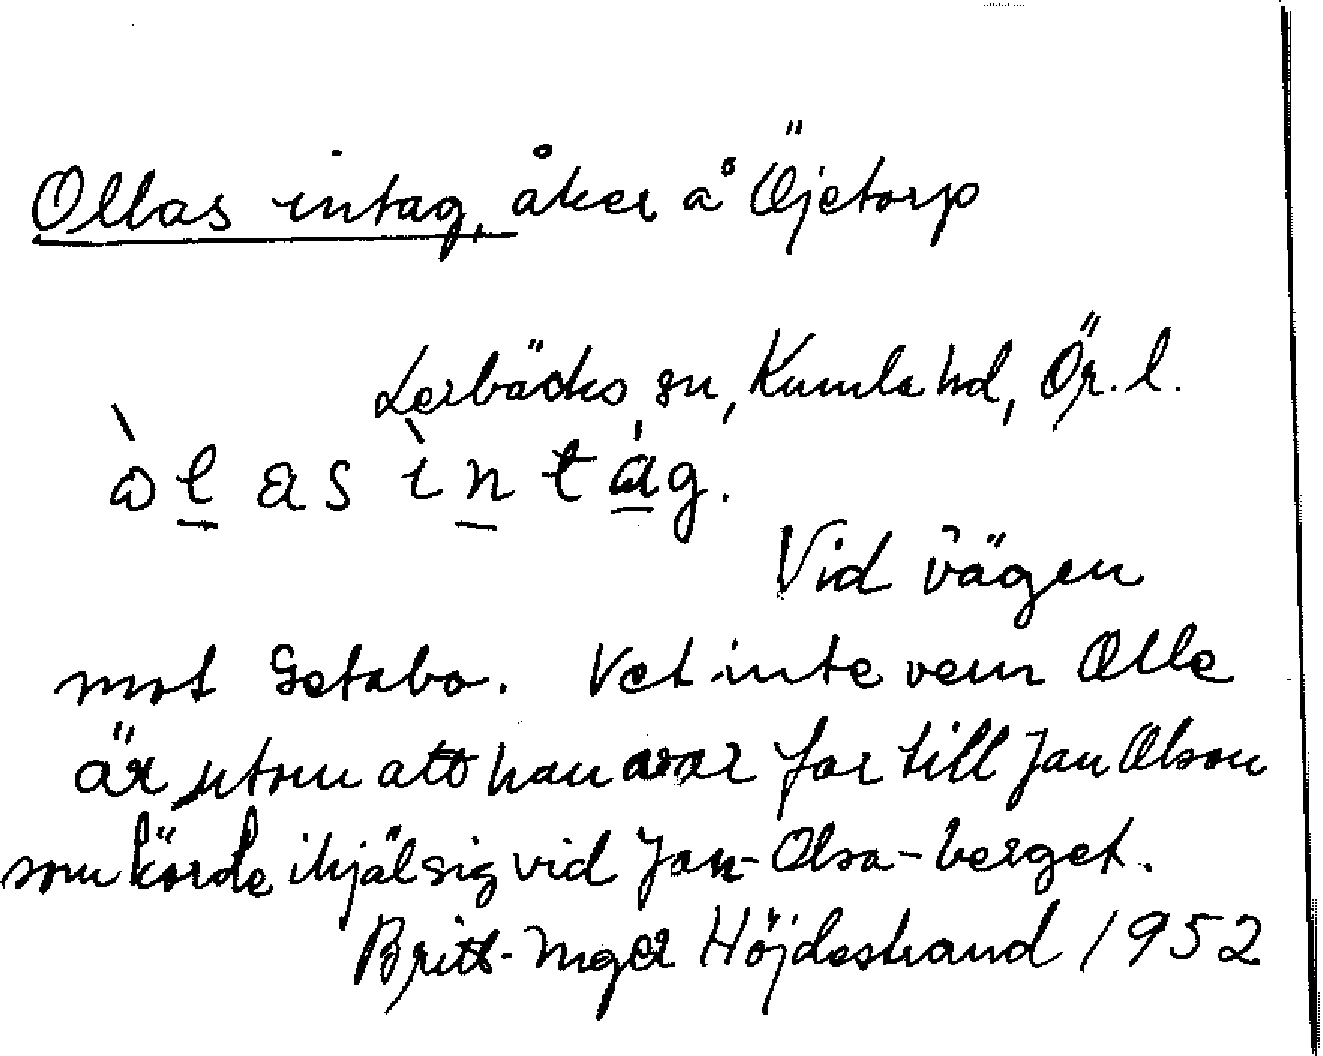 Ollas intag, åker å Öjetorp
Lerbäcks sn, Kumla hd, Ör. l.
òl̠as ìn̠tá̠g.
Vid vägen
mot Getabo. Vet inte vem Olle
är utom att han var far till Jan Olson
som körde ihjäl sig vid Jan-Olsa-berget.
Britt-Inger Höjdestrand 1952